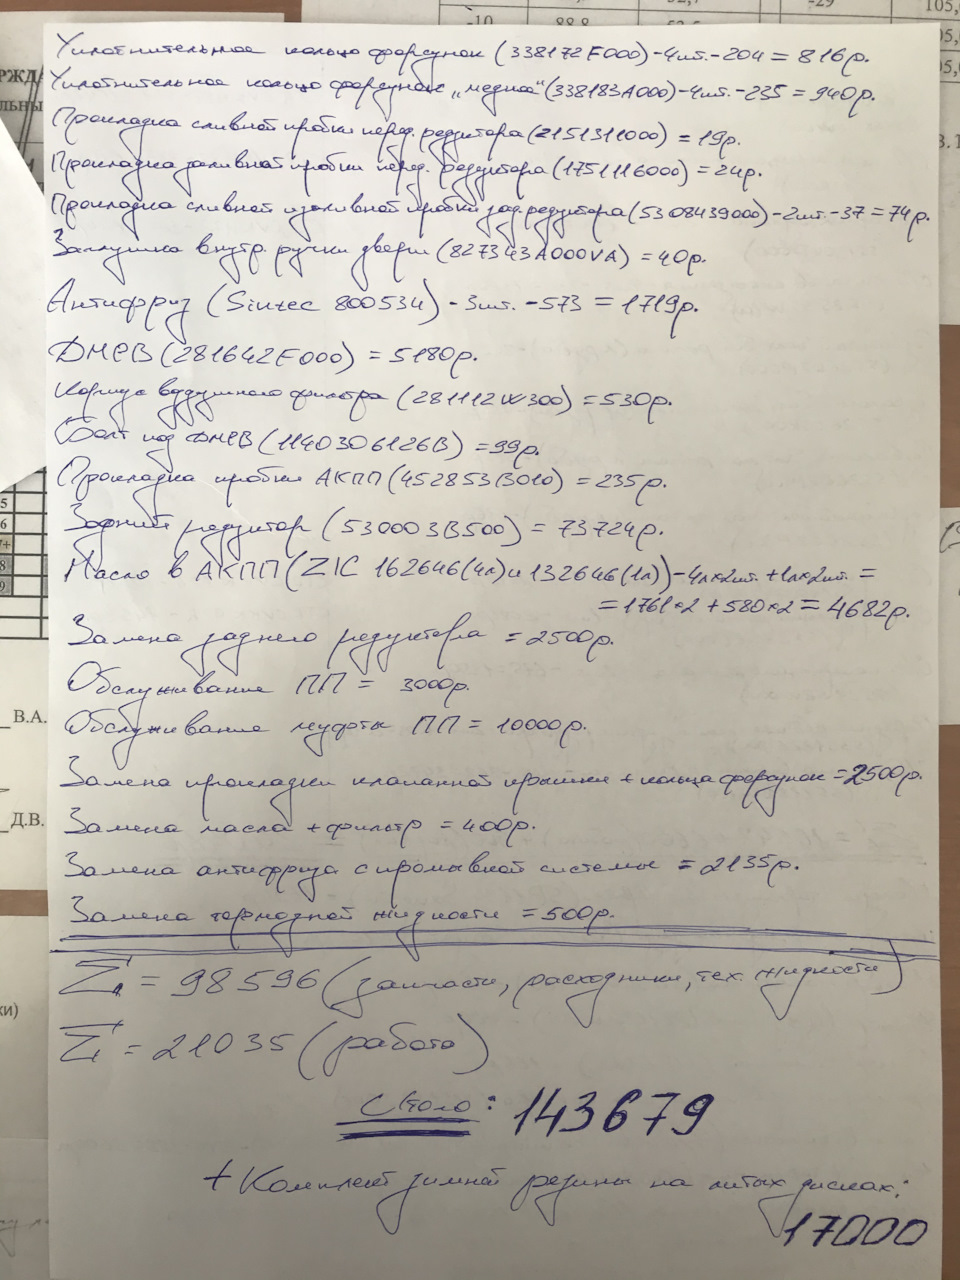 -10
88,8
-29
105,
РЖД
льны
Уплотнительное кольцо форсунок (338172F000) -4шт.-204 = 816р.
Уплотнительное кольцо форсунок "медное" (338183A000) -4шт. -235 = 940р.
Прокладка сливной пробки перед. редуктора (2151311000) = 19р.
Прокладка заливной пробки перед. редуктора (1751116000) = 24р.
Прокладка сливной и заливной пробки зад. редуктора (5308439000) -2шт.-37 = 74р.
Заглушка внутр. ручки двери (827343A000VA) = 40р.
Антифриз (Sintec 800534) - 3шт. -573 = 1719р.
ДМРВ (281642F000) = 5180р.
Корпус воздушного фильтра (281112W300) = 530р.
Болт под ДМРВ (1140306126B) = 99р.
Прокладка пробки АКПП (452853B010) = 235р.
Задний редуктор (530003B500) = 73724р.
Масло в АКПП (ZIC 162646(4л) и 132646(1л)) -4л×2шт. +1л×2шт. =
= 1761×2 + 580×2 = 4682р.
Замена заднего редуктора = 2500р.
Обслуживание ПП = 3000р.
Обслуживание муфты ПП = 10000р.
Замена прокладки клапанной крышки + кольца форсунок = 2500р.
Замена масла + фильтр = 400р.
Замена антифриза с промывкой системы = 2135р.
Замена тормозной жидкости = 500р.
Σ = 98596 (запчасти, расходники, тех. жидкости)
Σ = 21035 (работа)
Стало: 143679
+ Комплект зимней резины на литых дисках:
17000
5
6
7+
8
9
В.А.
Д.В.
ки)